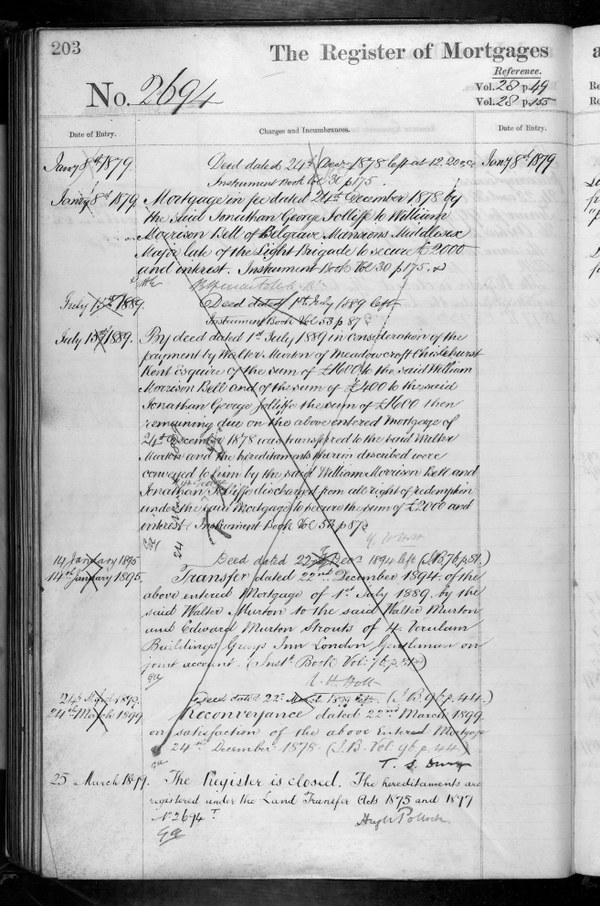 203
The Register of Mortgages
Reference.
No. 2694
Vol. 28 p. 49
Vol. 28 p. 155
Date of Entry.
Charges and Incumbrances.
Date of Entry.
Jany 8th 1879.
Deed dated 24th Decr 1878 left at 12.20
Jany 8th 1879
Instrument Book Vol 30 p 175.
Jany 8th 1879.
Mortgage in fee dated 24th December 1878 by
the said Jonathan George Jolliffe to William
Morrison Bell of Belgrave Mansions Middlesex
Major late of the Light Brigade to secure £2000
and interest. Instrument Book Vol 30 p 175.
July 1889.
Deed dated 1st July 1889 left
Instrument Book Vol 53 p 87
July 1889.
By deed dated 1st July 1889 in consideration of the
payment by Walter Murton of Meadowcroft Chislehurst
Kent Esquire of the sum of £1600 to the said William
Morrison Bell and of the sum of £400 to the said
Jonathan George Jolliffe the sum of £1600 then
remaining due on the above entered Mortgage of
24th December 1878 was transferred to the said Walter
Murton and the hereditaments therein described were
conveyed to him by the said William Morrison Bell and
Jonathan George Jolliffe discharged from all right of redemption
under the said Mortgage to secure the sum of £2000 and
interest. Instrument Book Vol 53 p 87
14 January 1895
Deed dated 22 Decr 1894 left (I.B. 76 p. 81.)
14th January 1895.
Transfer dated 22nd December 1894 of the
above entered Mortgage of 1st July 1889 by the
said Walter Murton to the said Walter Murton
and Edward Murton Strouts of 4 Verulam
Buildings Grays Inn London Gentleman on
joint account. (Inst. Book Vol. 76 p. 81)
24th March 1899
Deed dated 22nd March 1899 left. (I.B. 96 p. 44.)
24th March 1899
Reconveyance dated 22nd March 1899
on satisfaction of the above Entered Mortgage
24th December 1878. (I.B. Vol. 96 p. 44)
25 March 1899.
The Register is closed. The hereditaments are
registered under the Land Transfer Acts 1875 and 1897
No 2694
Hugh Pollock